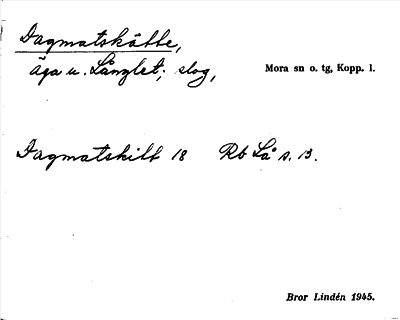 Dagmatskätte,
äga u. Långlet; slog,
Mora sn o. tg, Kopp. l.
Dagmatskitt 18 Rb Lå s. 13.
Bror Lindén 1945.